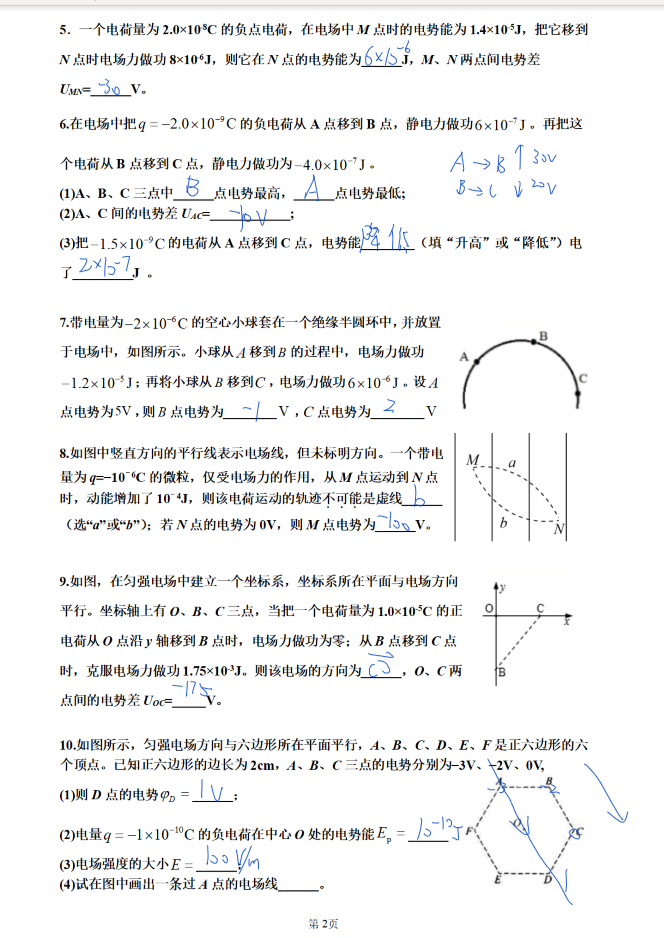 5. 一个电荷量为 2.0×10⁻⁸C 的负点电荷，在电场中 M 点时的电势能为 1.4×10⁻⁵J，把它移到
N 点时电场力做功 8×10⁻⁶J，则它在 N 点的电势能为 6×10⁻⁶ J，M、N 两点间电势差
U_MN= -30 V。
6.在电场中把 q = −2.0×10⁻⁹C 的负电荷从 A 点移到 B 点，静电力做功 6×10⁻⁷J。再把这
个电荷从 B 点移到 C 点，静电力做功为 −4.0×10⁻⁷J。
A→B ↑30V
B→C ↓20V
(1)A、B、C 三点中 B 点电势最高， A 点电势最低;
(2)A、C 间的电势差 U_AC= -10V ;
(3)把 −1.5×10⁻⁹C 的电荷从 A 点移到 C 点，电势能 降低 （填“升高”或“降低”）电
了 2×10⁻⁷ J 。
7.带电量为 −2×10⁻⁶C 的空心小球套在一个绝缘半圆环中，并放置
于电场中，如图所示。小球从 A 移到 B 的过程中，电场力做功
−1.2×10⁻⁵J；再将小球从 B 移到 C，电场力做功 6×10⁻⁶J。设 A
点电势为 5V，则 B 点电势为 -1 V，C 点电势为 2 V
A B C
8.如图中竖直方向的平行线表示电场线，但未标明方向。一个带电
量为 q=−10⁻⁶C 的微粒，仅受电场力的作用，从 M 点运动到 N 点
时，动能增加了 10⁻⁴J，则该电荷运动的轨迹不可能是虚线 b
（选“a”或“b”）；若 N 点的电势为 0V，则 M 点电势为 -100 V。
M a
b N
9.如图，在匀强电场中建立一个坐标系，坐标系所在平面与电场方向
平行。坐标轴上有 O、B、C 三点，当把一个电荷量为 1.0×10⁻⁵C 的正
电荷从 O 点沿 y 轴移到 B 点时，电场力做功为零；从 B 点移到 C 点
时，克服电场力做功 1.75×10⁻³J。则该电场的方向为 CO ，O、C 两
点间的电势差 U_OC= -175 V。
y
O C x
B
10.如图所示，匀强电场方向与六边形所在平面平行，A、B、C、D、E、F 是正六边形的六
个顶点。已知正六边形的边长为 2cm，A、B、C 三点的电势分别为−3V、−2V、0V,
(1)则 D 点的电势 φ_D = 1V ;
(2)电量 q = −1×10⁻¹⁰C 的负电荷在中心 O 处的电势能 E_p = 10⁻¹⁰J
(3)电场强度的大小 E = 100V/m ;
(4)试在图中画出一条过 A 点的电场线 。
A B
F O C
E D
第 2页